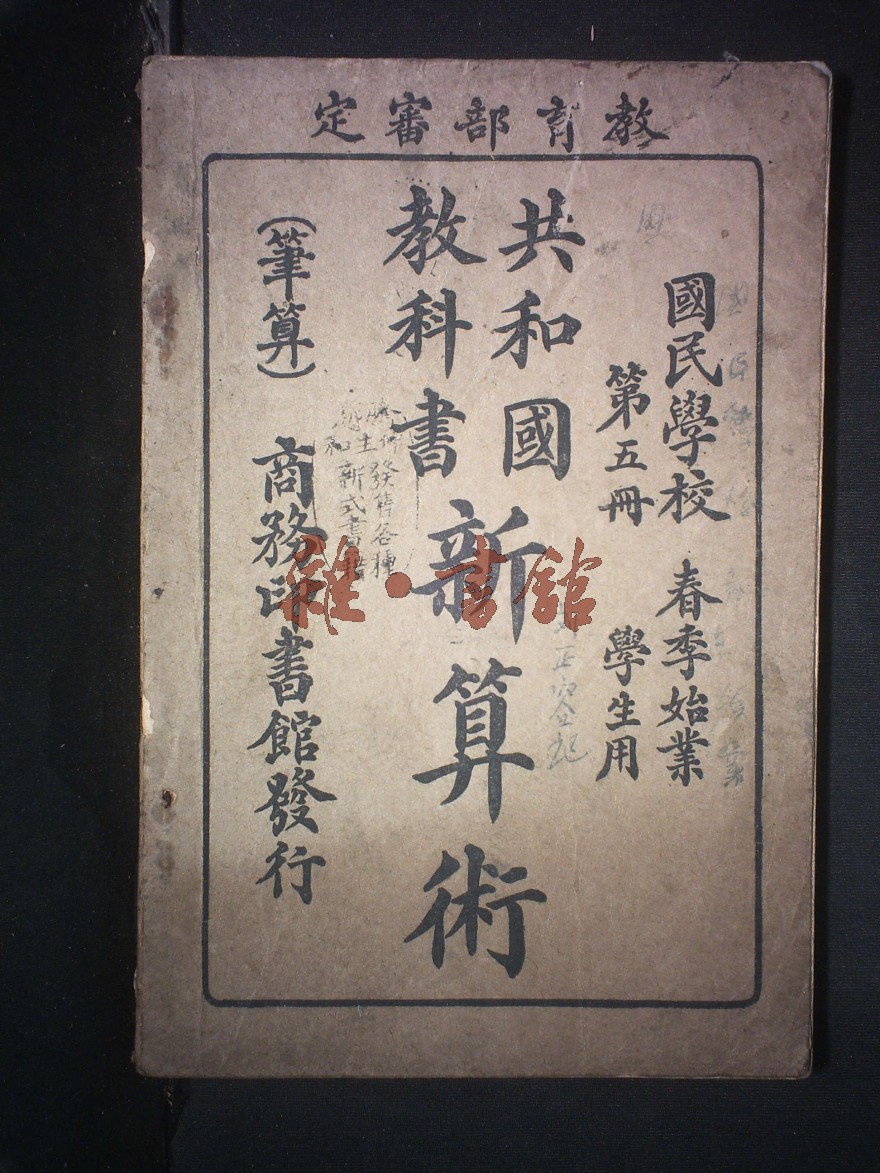 教育部審定
國民學校 春季始業
第五冊 學生用
共和國
教科書
新算術
(筆算)
商務印書館發行
發售各種
新式書籍
雜·書館